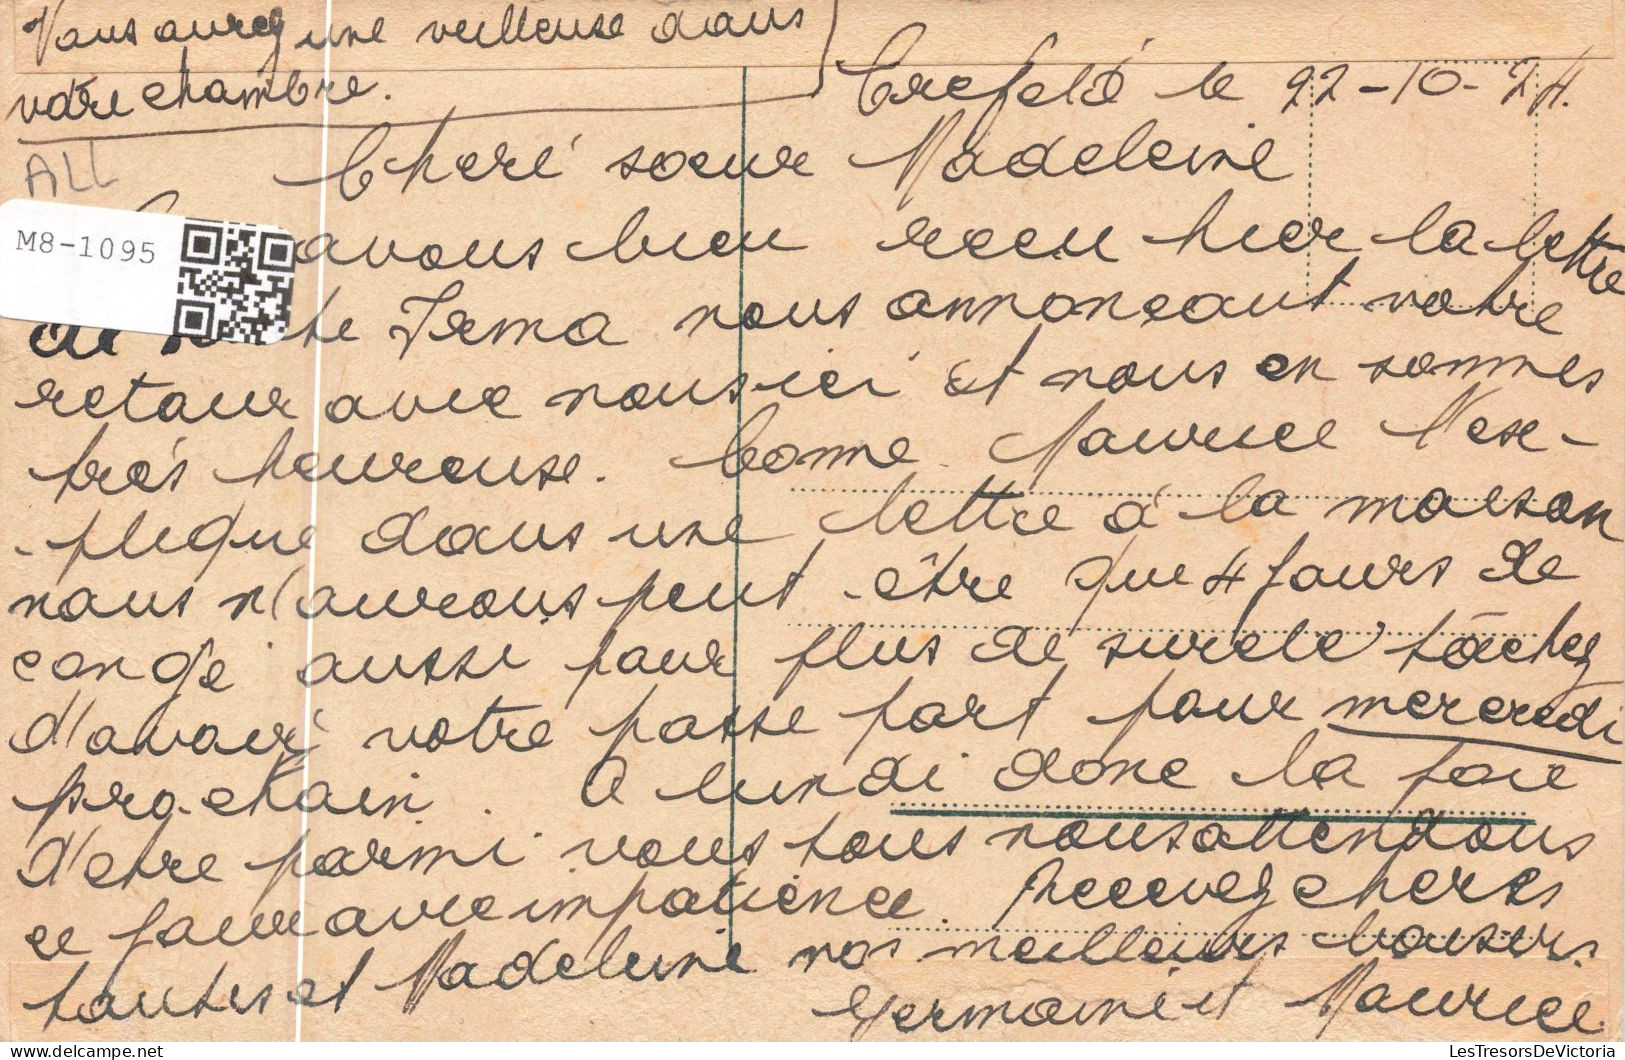 Vous aurez une veilleuse dans
votre chambre.
Crefeld le 22-10-24.
ALL
Cheré soeur Madeleine
M8-1095
avons bien recu hier la lettre
de te Irma nous annoncant votre
retour avec nous ici et nous en sommes
très heureuse. Come Maurice l'ex-
-plique dans une lettre à la maison
nous n'aurons peut-être que 4 jours de
congé aussi pour plus de sureté tâchez
d'avoir votre passe port pour mercredi
prochain. A lundi donc la joie
d'etre parmi vous tous nous attendons
ce jour avec impatience. Recevez cheres
toutes et Madeleine nos meilleurs baisers.
Germaine et Maurice
© LesTresorsDeVictoria LesTresorsDeVictoria.com